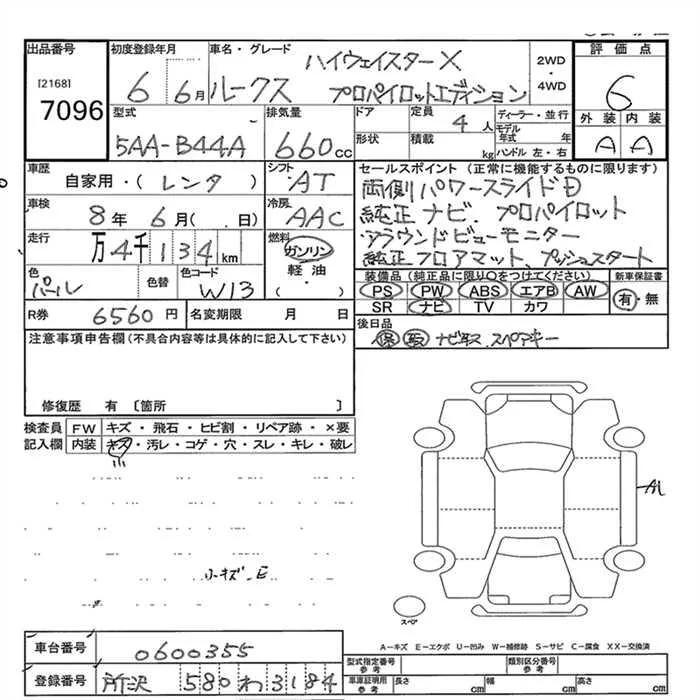 出品番号
[2168]
7096
初度登録年月
6 6月
車名・グレード
ルークス
ハイウェイスターX
プロパイロットエディション
2WD
・
4WD
評価点
6
外装 内装
A A
型式
5AA-B44A
排気量
660cc
ドア
形状
定員 4人
積載 kg
ディーラー・並行
モデル年式 年
ハンドル 左・右
車歴
自家用・(レンタ )
シフト
AT
車検
8年 6月( 日)
冷房
AAC
走行
万4千134km
燃料
ガソリン
軽油
( ・ )
色
パール
色替
色コード
W13
R券 6560円
名変期限 月 日
セールスポイント (正常に機能するものに限ります)
両側パワースライドD
純正ナビ、プロパイロット
アラウンドビューモニター
純正フロアマット、プッシュスタート
装備品 (純正品に限り○をつけてください)
PS PW ABS エアB AW
SR ナビ TV カワ
新車保証書
有・無
後日品
保 取 ナビ取 スペアキー
注意事項申告欄 (不具合内容等は具体的に記入して下さい)
修復歴 有 〔箇所 〕
検査員記入欄
FW キズ・飛石・ヒビ割・リペア跡・×要
内装 キズ・汚レ・コゲ・穴・スレ・キレ・破レ
小キズ、E
A1
スペア
A-キズ E-エクボ U-凹み W-補修跡 S-サビ C-腐食 XX-交換済
車台番号 0600355
登録番号 所沢 580 わ 3184
型式指定番号 参考
類別区分番号 参考
車庫証明用 参考
長さ cm 幅 cm 高さ cm